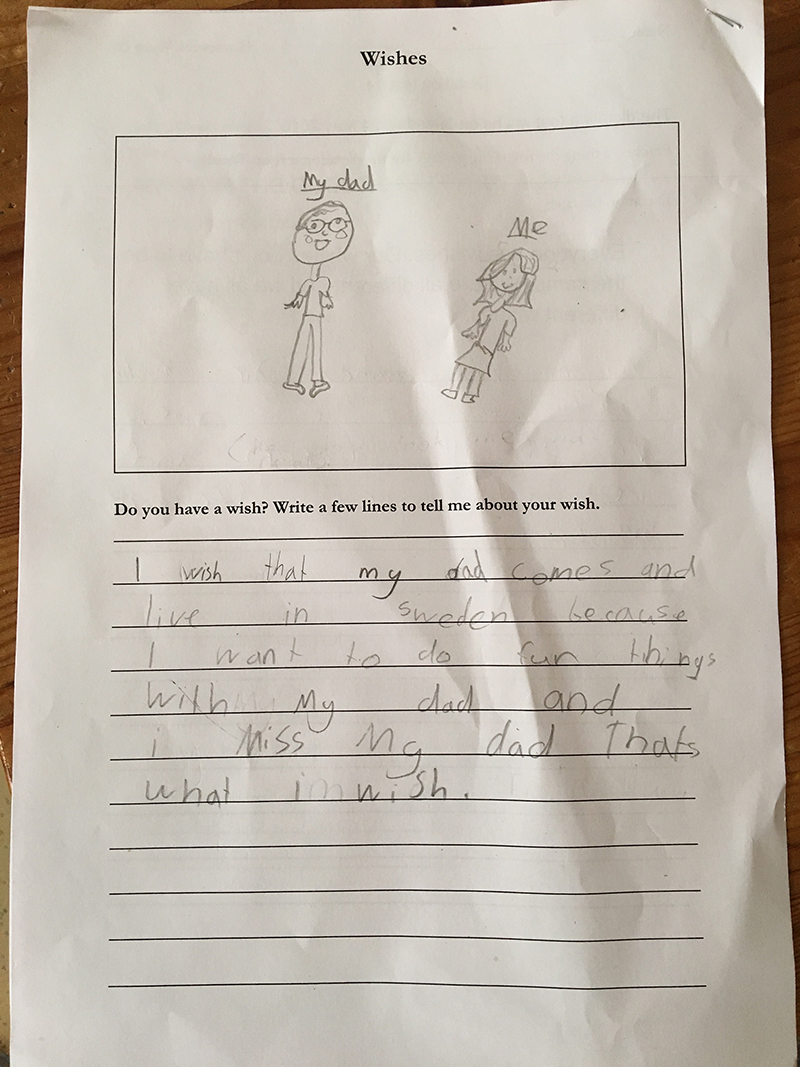 Wishes
My dad
Me
Do you have a wish? Write a few lines to tell me about your wish.
I wish that my dad comes and
live in sweden because
I want to do fun things
with my dad and
i Miss My dad Thats
what i wish.